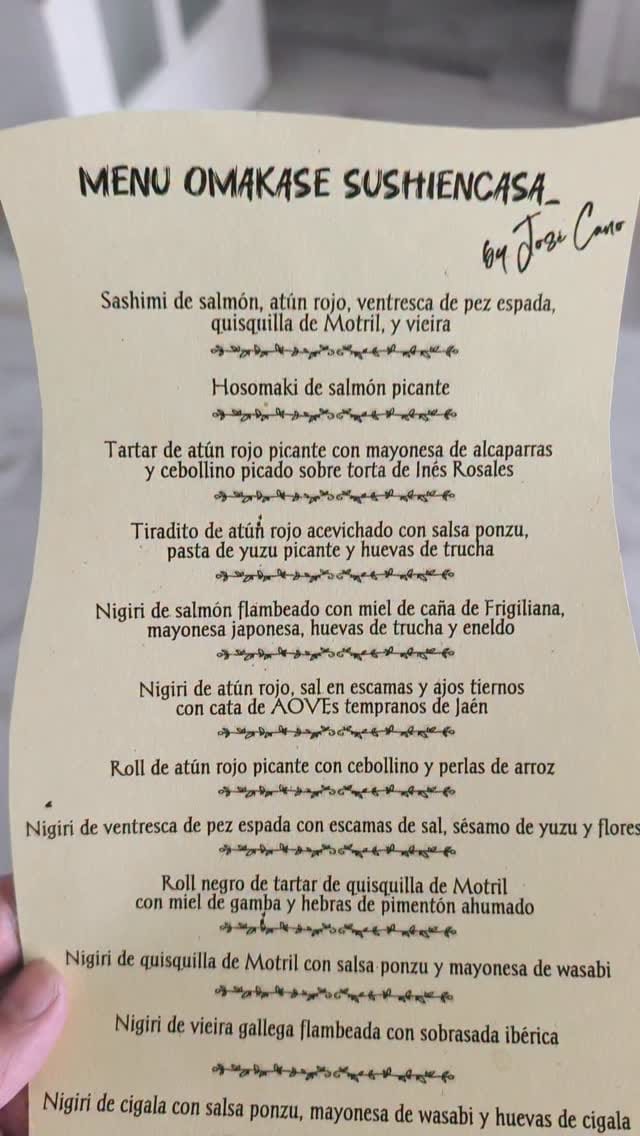 MENU OMAKASE SUSHIENCASA_
by José Cano
Sashimi de salmón, atún rojo, ventresca de pez espada,
quisquilla de Motril, y vieira
Hosomaki de salmón picante
Tartar de atún rojo picante con mayonesa de alcaparras
y cebollino picado sobre torta de Inés Rosales
Tiradito de atún rojo acevichado con salsa ponzu,
pasta de yuzu picante y huevas de trucha
Nigiri de salmón flambeado con miel de caña de Frigiliana,
mayonesa japonesa, huevas de trucha y eneldo
Nigiri de atún rojo, sal en escamas y ajos tiernos
con cata de AOVEs tempranos de Jaén
Roll de atún rojo picante con cebollino y perlas de arroz
Nigiri de ventresca de pez espada con escamas de sal, sésamo de yuzu y flores
Roll negro de tartar de quisquilla de Motril
con miel de gamba y hebras de pimentón ahumado
Nigiri de quisquilla de Motril con salsa ponzu y mayonesa de wasabi
Nigiri de vieira gallega flambeada con sobrasada ibérica
Nigiri de cigala con salsa ponzu, mayonesa de wasabi y huevas de cigala